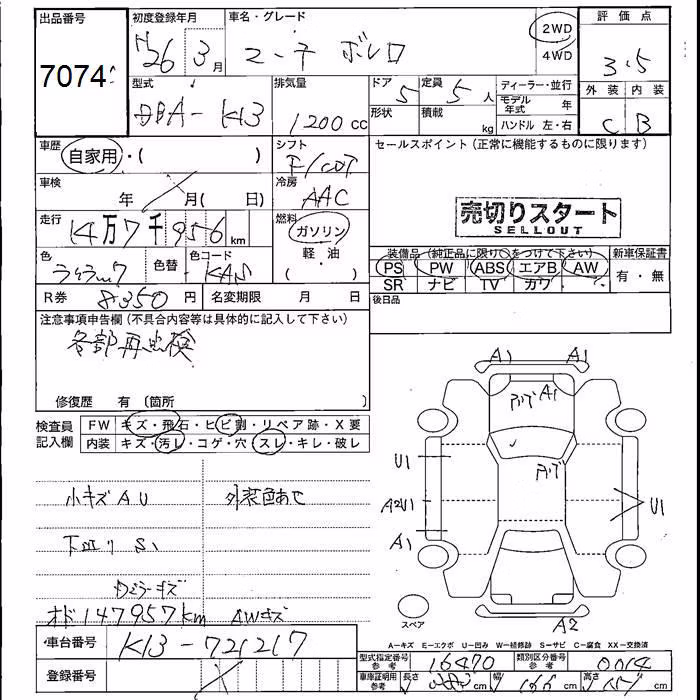 出品番号 初度登録年月 車名・グレード 評価点
7074
H26 3月 マーチ ボレロ 2WD 4WD 3.5
型式 排気量 ドア 定員 ディーラー・並行 外装 内装
DBA-K13 1200cc 5 5人 モデル年式 年 C B
形状 積載 kg ハンドル 左・右
車歴 シフト セールスポイント(正常に機能するものに限ります)
自家用・( ) F/CVT
車検 年 月( 日) 冷房 AAC
売切りスタート
SELLOUT
走行 14万7千956km 燃料 ガソリン・軽・油( )
色 色替 色コード KAS 装備品(純正品に限り○をつけて下さい) 新車保証書
PS PW ABS エアB AW 有・無
SR ナビ TV カワ
R券 8350円 名変期限 月 日 後日品
注意事項申告欄(不具合内容等は具体的に記入して下さい)
各部再点検
修復歴 有(箇所
検査員記入欄 FW キズ・飛石・ヒビ割・リペア跡・X要
内装 キズ・汚レ・コゲ・穴・スレ・キレ・破レ
小キズAU 外装色あせ
下回りS1
オド147957km AWキズ
A1 A1
A1
U1
A2U1 U1
A1
スペア A2
A−キズ E−エクボ U−凹み W−補修跡 S−サビ C−腐食 XX−交換済
車台番号 K13-721217 型式指定番号 参考 16470 類別区分番号 参考 0014
登録番号 車庫証明用 参考 長さ cm 幅 166cm 高さ cm